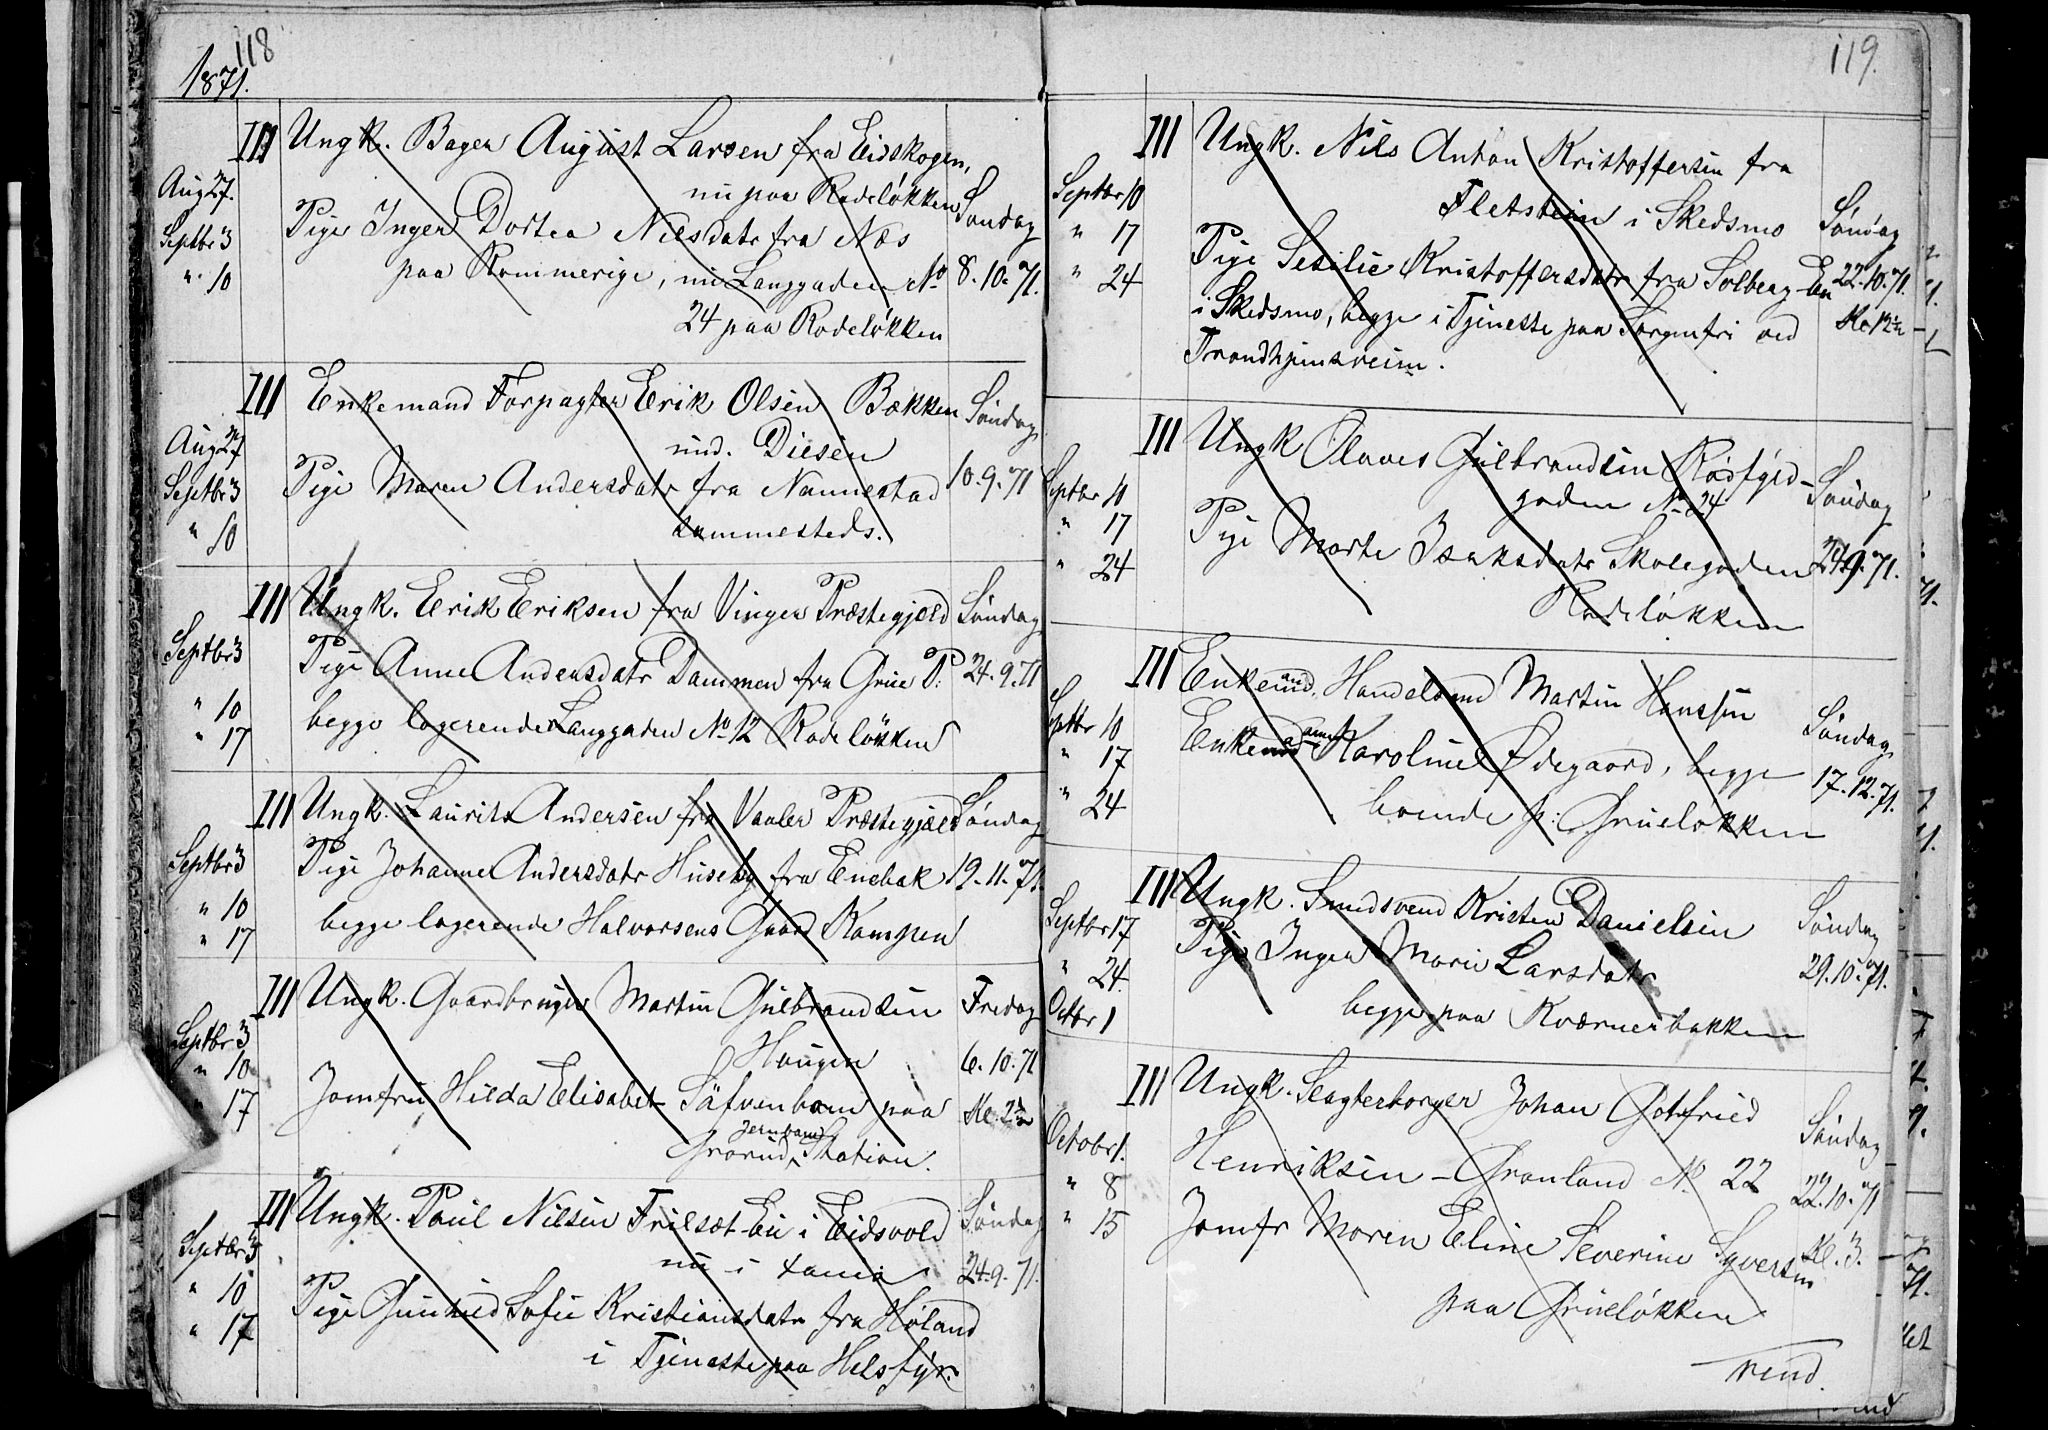 118
1871.
III Ungk. Bager August Larsen fra Eidskogen,
nu paa Rodeløkken
Aug 27.
Septbr 3
" 10
Pige Inger Dortea Nilsdatr fra Næs
paa Rommerige, nu Langgaden No
24 paa Rodeløkken
Søndag
8.10.71.
III Enkemand Forpagter Erik Olsen Bækken
nud. Diesen
Aug 27
Septbr 3
" 10
Pige Maren Andersdatr fra Nannestad
sammesteds.
Søndag
10.9.71
III Ungk. Erik Eriksen fra Vinger Præstegjeld
Septbr 3
" 10
" 17
Pige Anne Andersdatr Dammen fra Grue P:
begge logerende Langgaden No 12 Rodeløkken
Søndag
24.9.71
III Ungk. Laurits Andersen fra Vaaler Præstegjæld
Septbr 3
" 10
" 17
Pige Johanne Andersdatr Huseby fra Enebak
begge logerende Halvorsens Gaard Kampen
Søndag
19.11.71.
III Ungk. Gaardbruger Martin Gulbrandsen
Haugen
Septbr 3
" 10
" 17
Jomfru Hilda Elisabet Säfvenbom paa
Grorud Jernbane Station.
Fredag
6.10.71
Kl. 2½
III Ungk. Paul Nilsen Frilset Ei i Eidsvold
nu i
Septbr 3
" 10
" 17
Pige Gunhild Sofie Kristiansdatr fra Høland
i Tjeneste paa Helsfyr.
Søndag
24.9.71.
119.
III Ungk. Nils Anton Kristoffersen fra
Fletstein i Skedsmo
Septbr 10
" 17
" 24
Pige Sesilie Kristoffersdatr fra Solberg Ein
i Skedsmo, begge i Tjeneste paa Sorgenfri ved
Trondhjemsveien.
Søndag
22.10.71.
Kl 12½
III Ungk Olaves Gulbrandsen Rødfyld-
gaden No 24
Septbr 10
" 17
" 24
Pige Marte Isaksdatr Skolegaden
Rodeløkken
Søndag
24.9.71.
III Enkemand. Handelsmd Martin Hanssen
Septbr 10
" 17
" 24
Enkemadame Karoline Ødegaard, begge
boende p: Grueløkken
Søndag
17.12.71.
III Ungk. Smedsvend Kristen Danielsen
Septbr 17
" 24
Octbr 1
Pige Inger Marie Larsdatr
begge paa Kværnerbakken
Søndag
29.10.71.
III Ungk. Slagterborger Johan Gotfried
Henriksen - Grønland No 22
Octobr 1.
" 8
" 15
Jomfr Maren Eline Severine Syversen
paa Grueløkken
Søndag
22.10.71
Kl. 3.
vend.